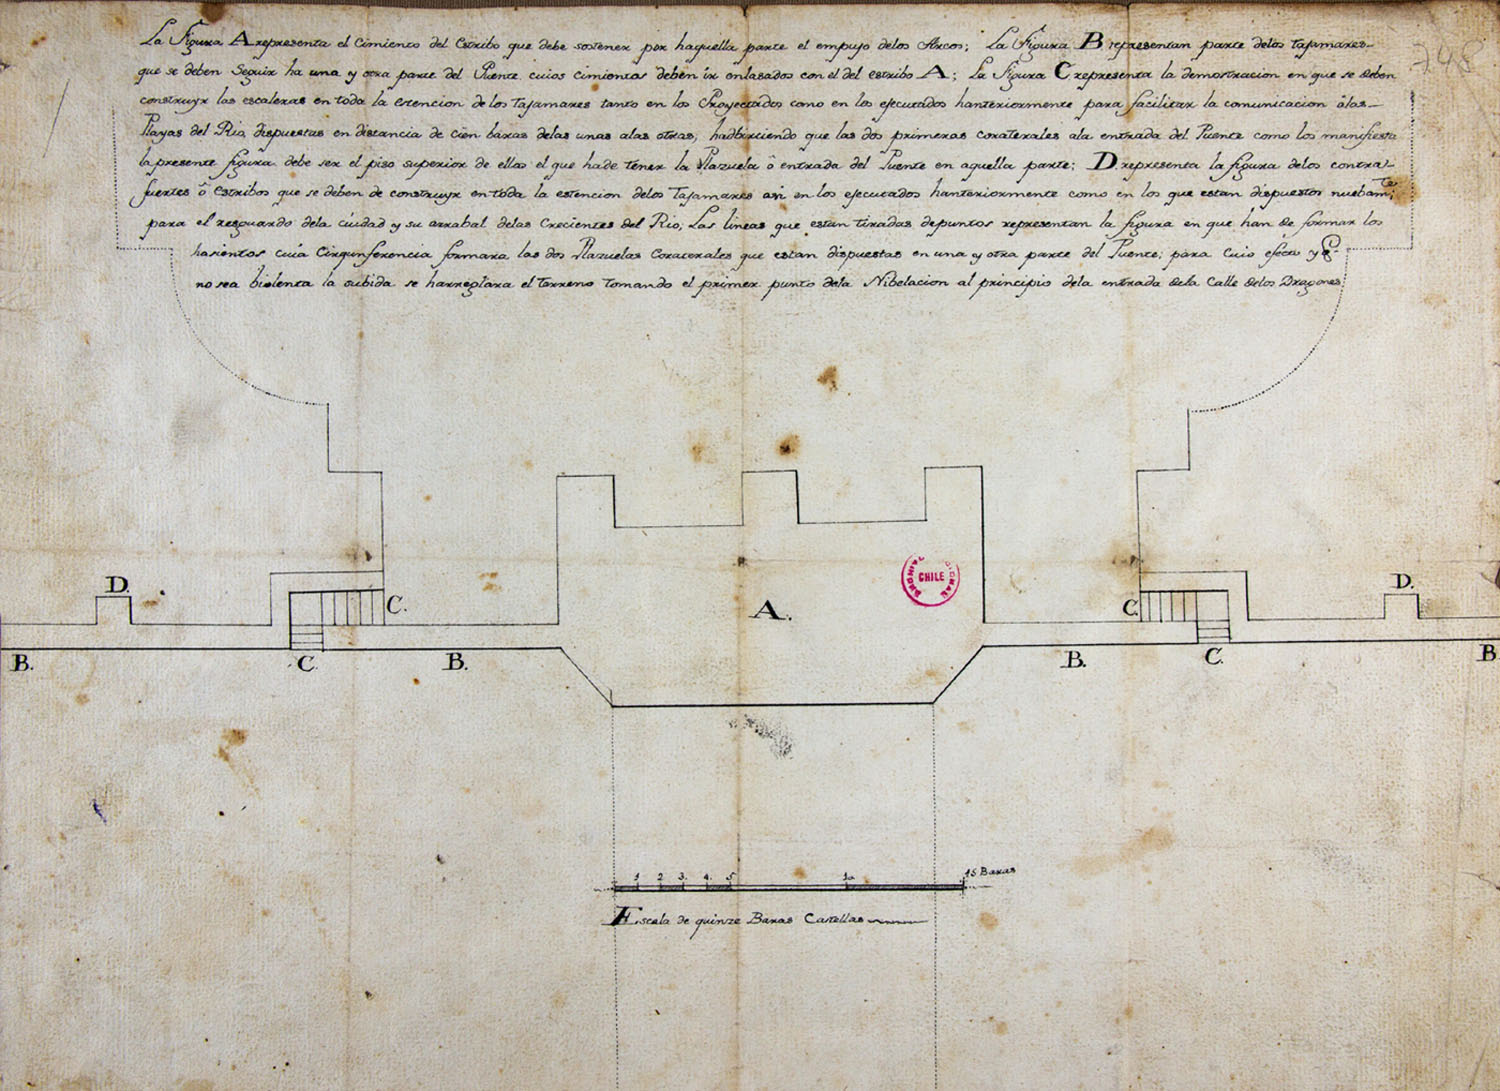 La Figura A representa el Cimiento del Estribo que debe sostener por haquella parte el empujo delos Arcos; La Figura B representan parte delos Tajamares
que se deben Seguir ha una y otra parte del Puente, cuios cimientos deben ir enlasados con el del estribo A; La Figura C representa la demostracion en que se deben
construyr las escaleras en toda la estencion de los Tajamares tanto en los Proyectados como en los ejecutados hanteriormente para facilitar la comunicacion âlas
Playas del Rio, dispuestas en distancia de cien baras delas unas alas otras, hadbirtiendo que las dos primeras coraterales ala entrada del Puente como los manifiesta
la presente figura debe ser el piso superior de ellas el que hade tener la Plazuela ô entrada del Puente en aquella parte; D representa la figura delos contra-
fuertes ô Estribos que se deben de construyr en toda la estencion delos Tajamares asi en los ejecutados hanteriormente como en los que estan dispuestos nuebamte
para el resguardo dela ciudad y su arrabal delas Crecientes del Rio; Las lineas que estan tiradas depuntos representan la figura en que han de formar los
hasientos cuia Cirqunferencia formara las dos Plazuelas Coraterales que estan dispuestas en una y otra parte del Puente; para cuio efecto y
no sea biolenta la subida se harreglara el terreno tomando el primer punto dela Nibelacion al principio dela entrada dela Calle delos Dragones
748
D.
D.
C.
C.
CHILE
A.
B.
C.
B.
B.
C.
B
1 2 3. 4. 5 10 15 Baras
Escala de quinze Baras Castellas